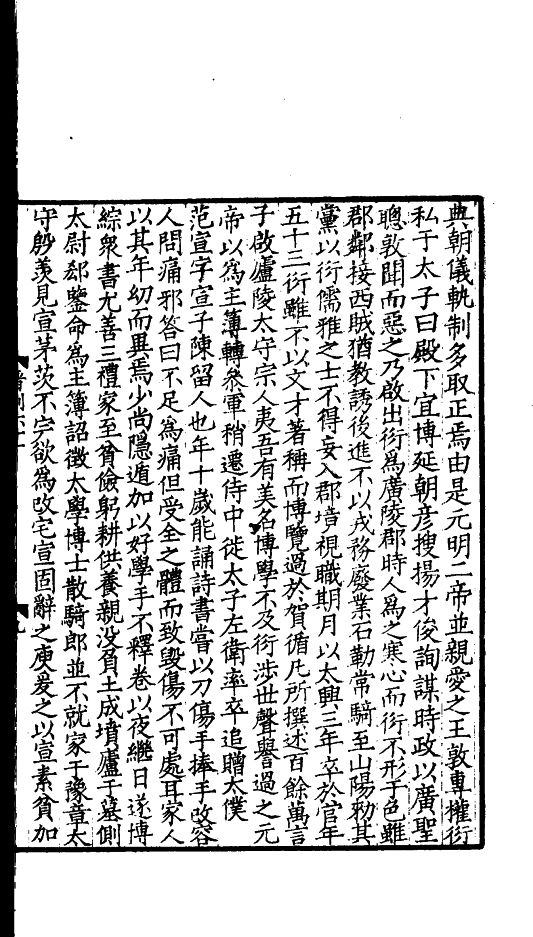 典朝儀軌制多取正焉由是元明二帝並親愛之王敦專權衍
私于太子曰殿下宜博延朝彥搜揚才俊詢謀時政以廣聖
聰敦聞而惡之乃啟出衍爲廣陵郡時人爲之寒心而衍不形于色雖
郡鄰接西賊猶教誘後進不以戎務廢業石勒常騎至山陽勑其
黨以衍儒雅之士不得妄入郡境視職期月以太興三年卒於官年
五十三衍雖不以文才著稱而博覽過於賀循凡所撰述百餘萬言
子啟廬陵太守宗人夷吾有美名博學不及衍涉世聲譽過之元
帝以爲主簿轉參軍稍遷侍中徙太子左衛率卒追贈太僕
范宣字宣子陳留人也年十歲能誦詩書嘗以刀傷手捧手改容
人問痛邪答曰不足爲痛但受全之體而致毀傷不可處耳家人
以其年幼而異焉少尚隱遁加以好學手不釋卷以夜繼日遂博
綜衆書尤善三禮家至貧儉躬耕供養親沒負土成墳廬于墓側
太尉郗鑒命爲主簿詔徵太學博士散騎郎並不就家于豫章太
守殷羨見宣茅茨不完欲爲改宅宣固辭之庾爰之以宣素貧加